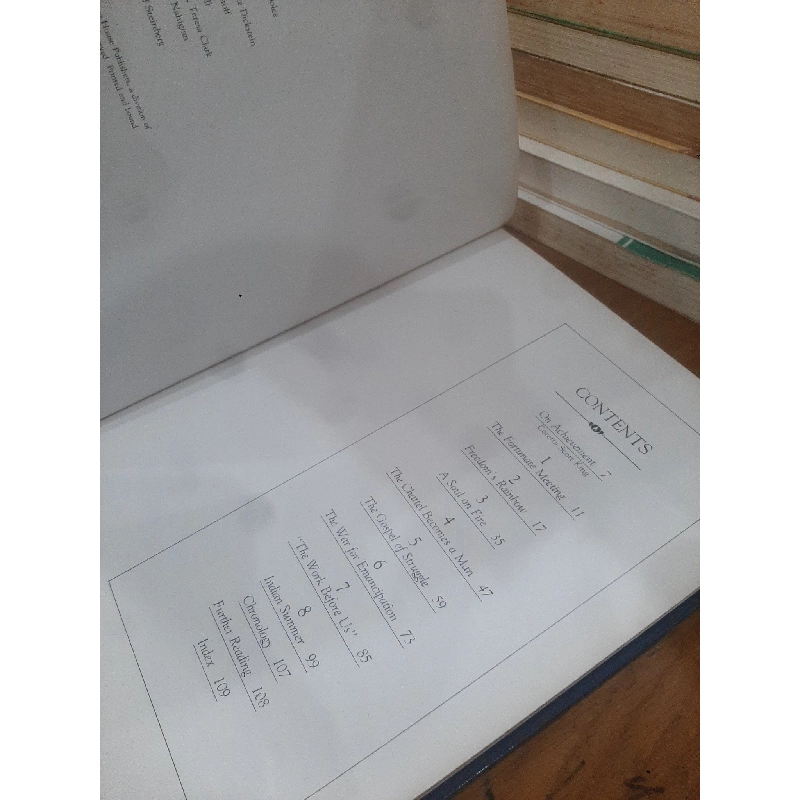 Dickstein
Teresa Clark
Nahigran
Steinberg
House Publishers, a division of
Printed and bound
CONTENTS
On Achievement 7
Coretta Scott King
1
The Fortunate Meeting 11
2
Freedom's Rainbow 17
3
A Soul on Fire 35
4
The Chattel Becomes a Man 47
5
The Gospel of Struggle 59
6
The War for Emancipation 73
7
"The Work Before Us" 85
8
Indian Summer 99
Chronology 107
Further Reading 108
Index 109